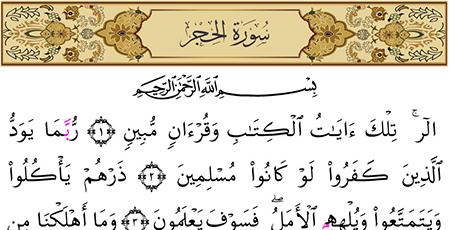 سُورَةُ الْحِجْرِ
بِسْمِ اللَّهِ الرَّحْمَٰنِ الرَّحِيمِ
الٓر ۚ تِلْكَ ءَايَٰتُ ٱلْكِتَٰبِ وَقُرْءَانٍ مُّبِينٍ ﴿١﴾ رُّبَمَا يَوَدُّ
ٱلَّذِينَ كَفَرُوا۟ لَوْ كَانُوا۟ مُسْلِمِينَ ﴿٢﴾ ذَرْهُمْ يَأْكُلُوا۟
وَيَتَمَتَّعُوا۟ وَيُلْهِهِمُ ٱلْأَمَلُ ۖ فَسَوْفَ يَعْلَمُونَ ﴿٣﴾ وَمَآ أَهْلَكْنَا مِن